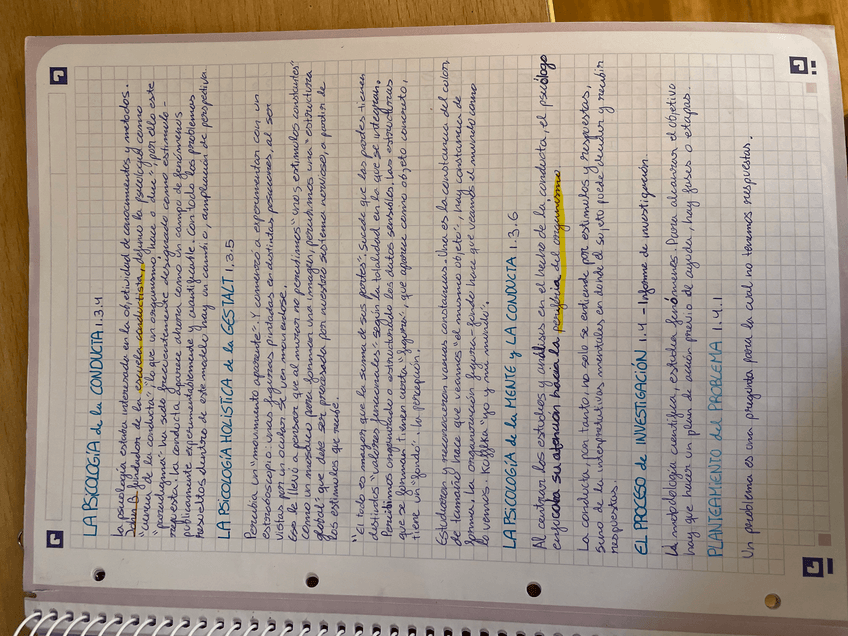 LA PSICOLOGÍA de la CONDUCTA 1.3.4
La psicología estaba interesada en la objetividad de conocimientos y metodos.
John B. fundador de la escuela conductista, define la psicología como
"ciencia de la conducta": "lo que un organismo hace o dice" por ello este
"paradigma" ha sido frecuentemente designado como estimulo -
respuesta. La conducta aparece ahora como un campo de fenómenos
publicamente experimentablemente y cuantificable. Con todo los problemas
resueltos dentro de este modelo hay un cambio, ampliación de perspectiva.
LA PSICOLOGÍA HOLÍSTICA de la GESTALT 1.3.5
Percibía un "movimiento aparente". Y comenzó a experimentar con un
estroboscopio: unas figuras pintadas en distintas posiciones, al ser
vistas por un ocular se ven moviendose.
Eso le llevó a pensar que al mirar no percibimos "unos estimulos constantes"
como un mosaico para formar una imagen, percibimos una "estructura
global" que debe ser procesada por nuestro sistema nervioso, a partir de
los estimulos que recibe.
"El todo es mayor que la suma de sus partes". Sucede que las partes tienen
distintos "valores funcionales" según la totalidad en la que se integran.
Percibimos organizando o estructurando los datos sensibles. Las estructuras
que se forman tienen cierta "figura", que aparece como objeto concreto,
tiene un "fondo". la percepción.
Estudiaron y reconocieron varias constancias. Una es la constancia del color,
de tamaño, hace que veamos "el mismo objeto", hay constancia de
forma. La organización figura-fondo hace que veamos el mundo como
lo vemos. Koffka "yo y mi mundo".
LA PSICOLOGÍA de la MENTE y LA CONDUCTA 1.3.6
Al centrar los estudios y análisis en el hecho de la conducta, el psicólogo
enfocaba su atención hacia la periferia del organismo
La conducta, por tanto, no solo se entiende por estimulos y respuestas,
sino de la interpretativas mentales en donde el sujeto puede decidir y recibir
respuestas.
EL PROCESO de INVESTIGACIÓN 1.4 - Informe de investigación
La metodología científica, estudia fenómenos. Para alcanzar el objetivo
hay que hacer un plan de acción previo de ayuda, hay fases o etapas.
PLANTEAMIENTO del PROBLEMA 1.4.1
Un problema es una pregunta para la cual no tenemos respuestas.